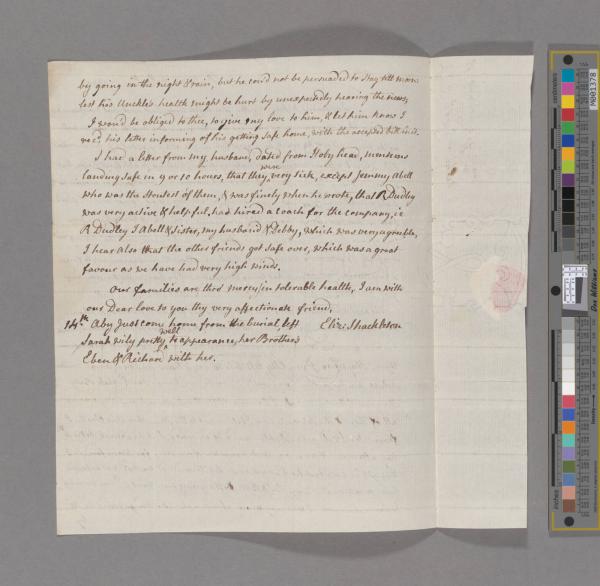 by going in the night & rain, but he could not be persuaded to stay till morn
lest his Unckle's health might be hurt by unexpectedly hearing the news,
I wou'd be obliged to thee, to give my love to him, & let him know I
recd. his letter informing of his getting safe home, with the accepted bill in it.
I had a letter from my husband, dated from Holy head, mentions
landing safe in 9 or 10 hours, that they were very sick, except Jemmy Abell
who was the stoutest of them, & was finely when he wrote, that R Dudley
was very active & helpful, has hired a coach for the company, ie
R Dudley J Abell & Sister, my husband & Debby, which was very agreeable,
I hear also that the other friends got safe over, which was a great
favour as we have had very high winds.
Our families are thro' mercy, in tolerable health, I am with
our Dear love to you thy very affectionate friend,
Eliz: Shackleton
14th. Aby just come home from the burial, left
Sarah wily pretty well to appearance, her Brothers
Eben & Richard with her.
centimetres
M001378
Don Williams
inches